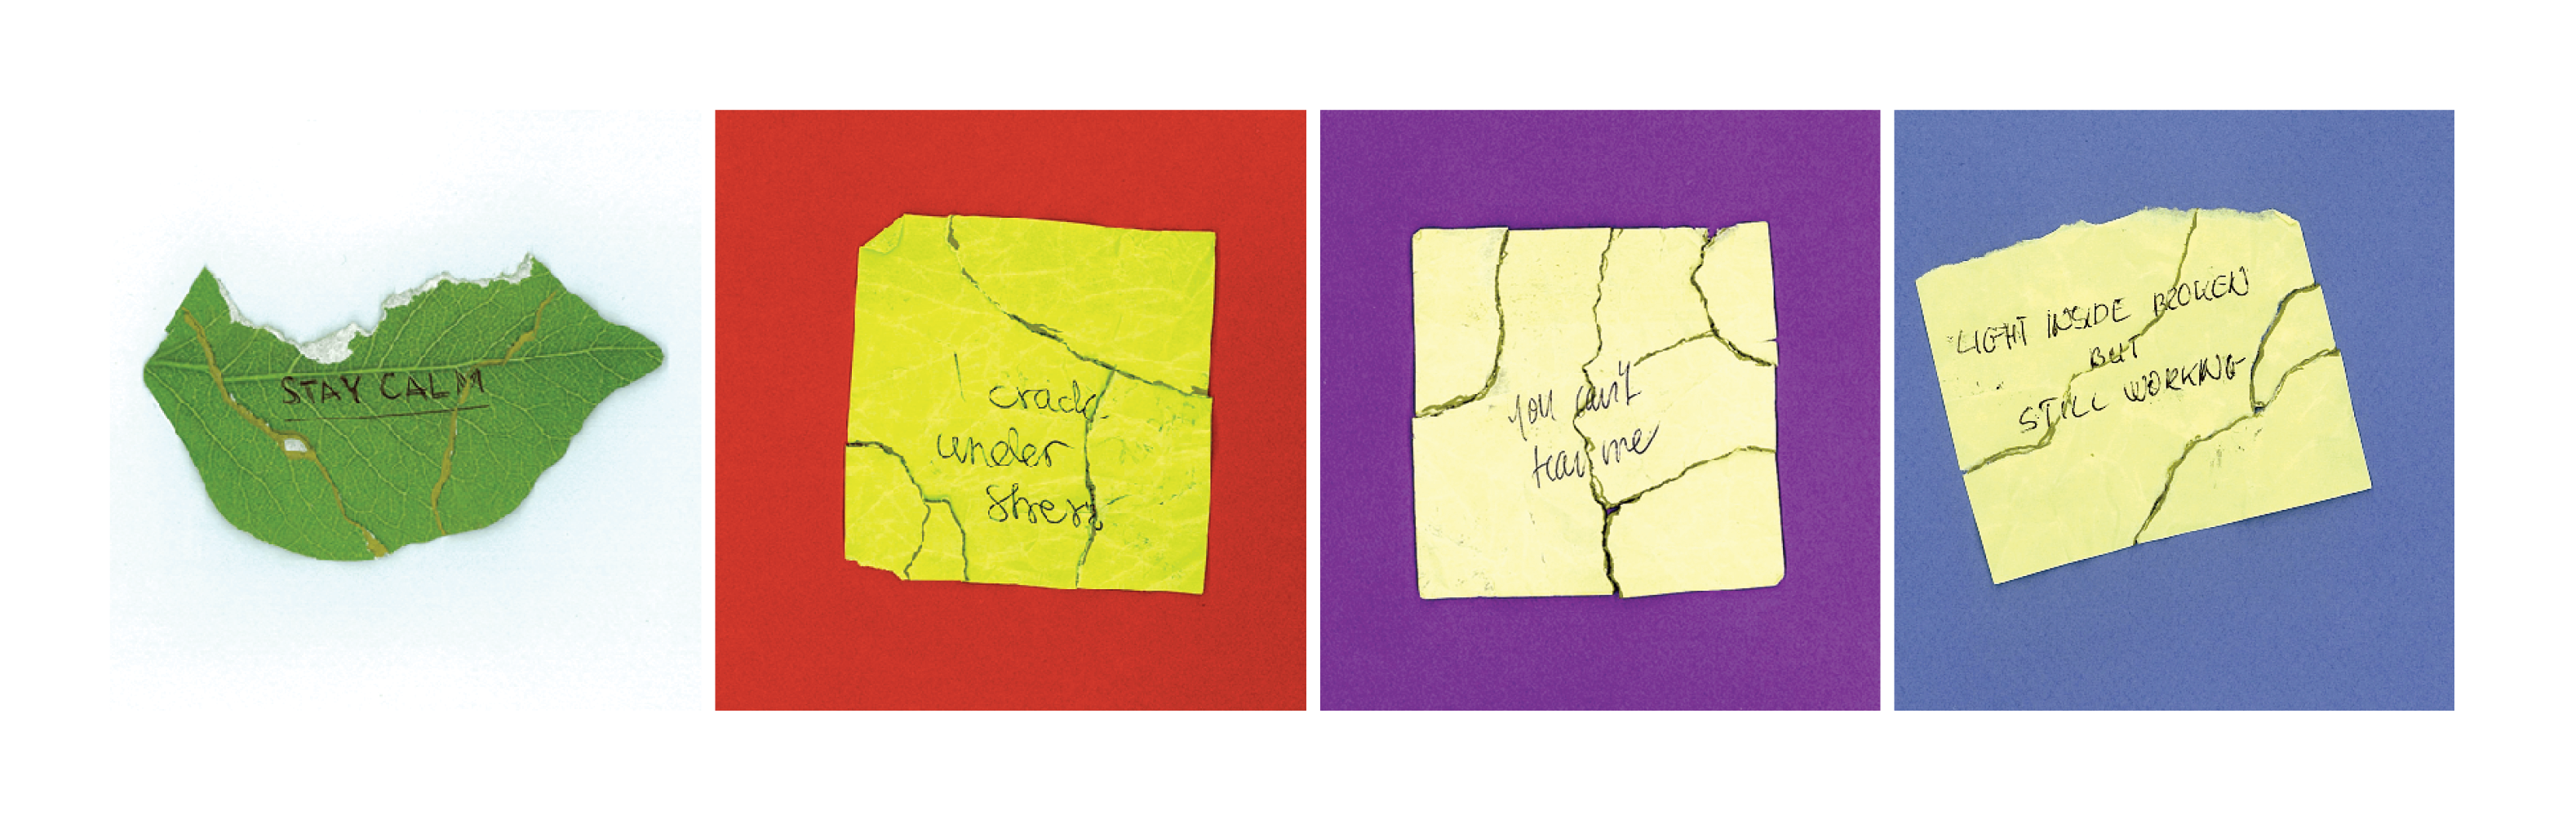 STAY CALM
I crack
under
stress
you can't
tear me
LIGHT INSIDE BROKEN
BUT
STILL WORKING